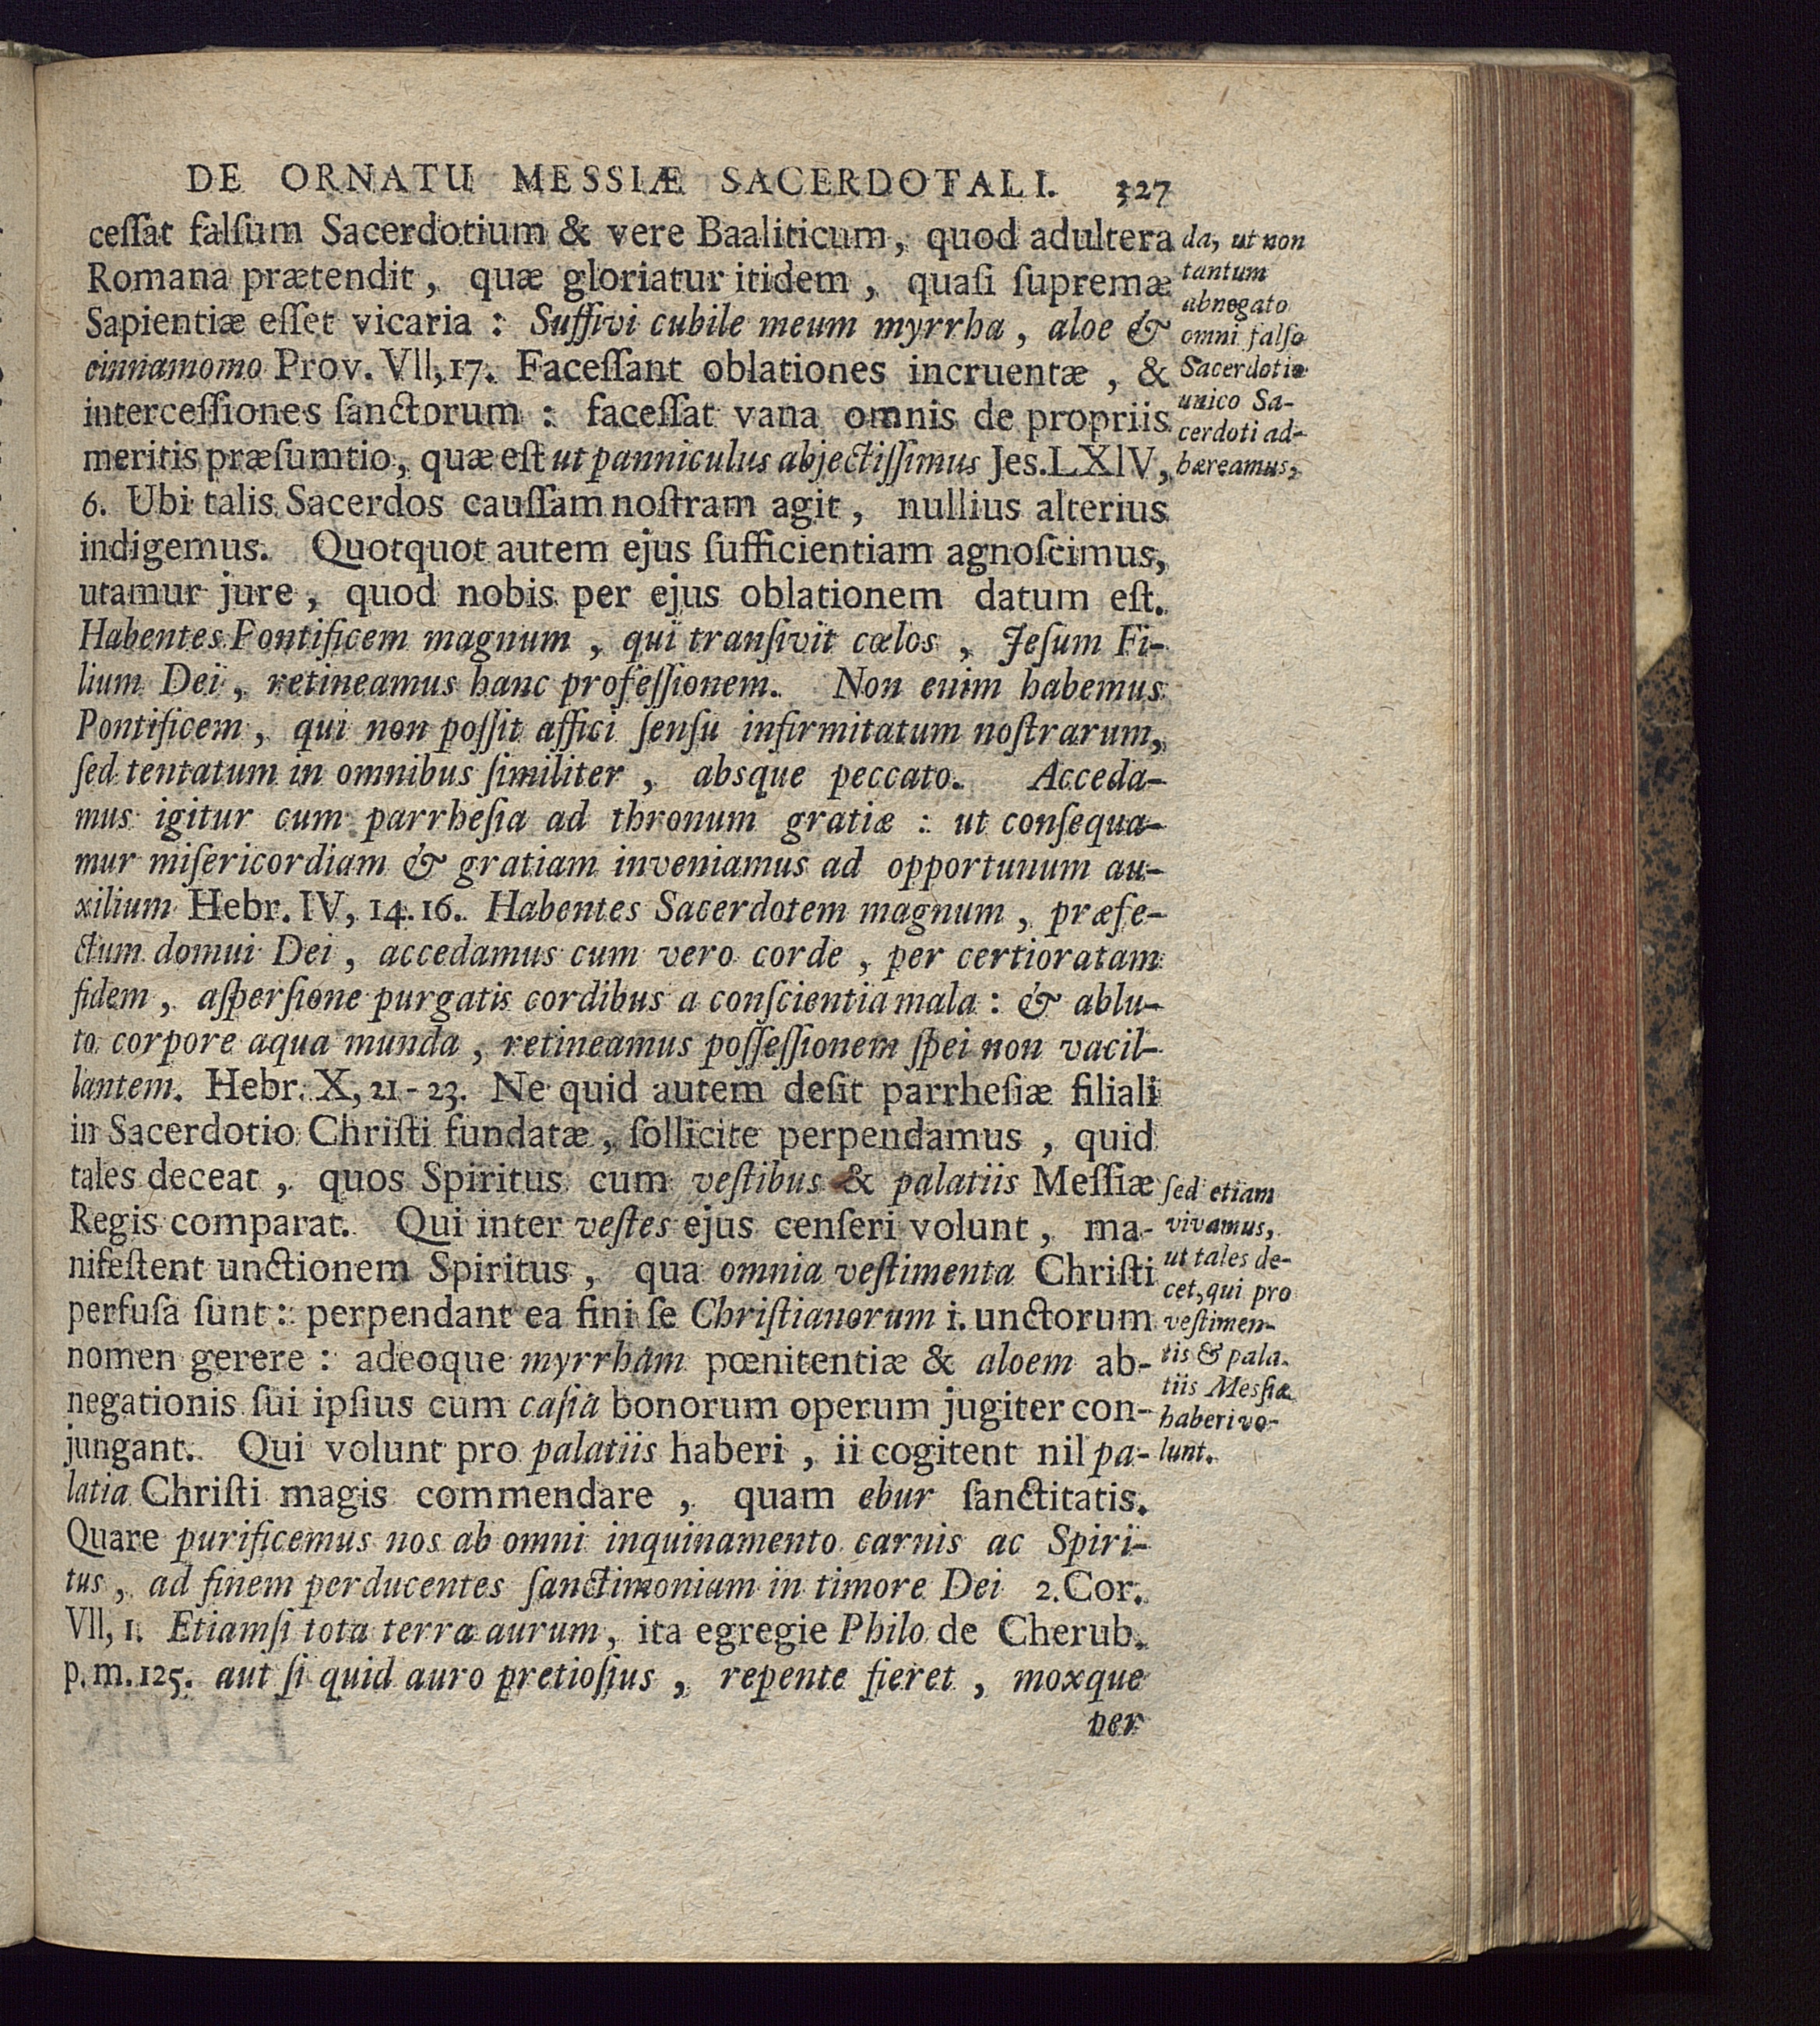 DE ORNATU MESSIÆ SACERDOTALI. 327
ceſſat falſum Sacerdotium & vere Baaliticum, quod adultera
Romana prætendit, quæ gloriatur itidem, quaſi ſupremæ
Sapientiæ eſſet vicaria: Suffivi cubile meum myrrha, aloe &
cinnamomo Prov. VII, 17. Faceſſant oblationes incruentæ, &
interceſſiones ſanctorum: faceſſat vana omnis de propriis
meritis præſumtio, quæ eſt ut panniculus abjectiſſimus Jes. LXIV,
6. Ubi talis Sacerdos cauſſam noſtram agit, nullius alterius
indigemus. Quotquot autem ejus ſufficientiam agnoſcimus,
utamur jure, quod nobis per ejus oblationem datum eſt.
Habentes Pontificem magnum, qui tranſivit cœlos, Jeſum Fi-
lium Dei, retineamus hanc profeſſionem. Non enim habemus
Pontificem, qui non poſſit affici ſenſu infirmitatum noſtrarum,
ſed tentatum in omnibus ſimiliter, absque peccato. Acceda-
mus igitur cum parrheſia ad thronum gratiæ: ut conſequa-
mur miſericordiam & gratiam inveniamus ad opportunum au-
xilium Hebr. IV, 14. 16. Habentes Sacerdotem magnum, præfe-
ctum domui Dei, accedamus cum vero corde, per certioratam
fidem, aſperſione purgatis cordibus a conſcientia mala: & ablu-
to corpore aqua munda, retineamus poſſeſſionem ſpei non vacil-
lantem. Hebr. X, 21-23. Ne quid autem deſit parrheſiæ filiali
in Sacerdotio Chriſti fundatæ, ſollicite perpendamus, quid
tales deceat, quos Spiritus cum veſtibus & palatiis Meſſiæ
Regis comparat. Qui inter veſtes ejus cenſeri volunt, ma-
nifeſtent unctionem Spiritus, qua omnia veſtimenta Chriſti
perfuſa ſunt: perpendant ea fini ſe Chriſtianorum i. unctorum
nomen gerere: adeoque myrrham pœnitentiæ & aloem ab-
negationis ſui ipſius cum caſia bonorum operum jugiter con-
jungant. Qui volunt pro palatiis haberi, ii cogitent nil pa-
latia Chriſti magis commendare, quam ebur ſanctitatis.
Quare purificemus nos ab omni inquinamento carnis ac Spiri-
tus, ad finem perducentes ſanctimoniam in timore Dei 2. Cor.
VII, 1. Etiamſi tota terra aurum, ita egregie Philo de Cherub.
p. m. 125. aut ſi quid auro pretioſius, repente fieret, moxque
per
da, ut non
tantum
abnegato
omni falſo
Sacerdotio
unico Sa-
cerdoti ad-
hæreamus,
ſed etiam
vivamus,
ut tales de-
cet, qui pro
veſtimen-
tis & pala-
tiis Meſſiæ
haberi vo-
lunt.